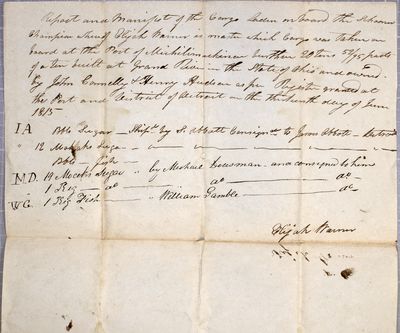 Report and Manifest of the Cargo Laden on board the Schooner
Champion whereof Elijah Warner is master which Cargo was taken on
board at the Port of Michilimackinac burthen 20 tons 57/95 parts
of a ton built at Grand River in the State of Ohio and owned
by John Connelly & Henry Hudson as per Register granted at
the Port and District of Detroit on the thirteenth day of June
1815
I A Bbls Sugar — Ship'd by S. Abbott Consign'd to James Abbott — Detroit
" 12 Mococks Sugar
Bbls fish
M.D. 14 Mococks Sugar " by Michael Dousman and consigned to him
1 Keg do do do
W G 1 Bbl Fish " William Gamble do
Elijah Warner